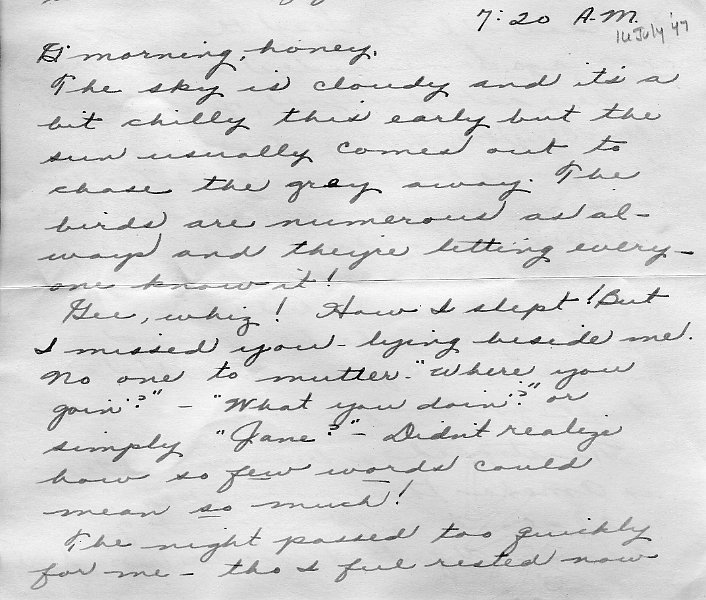 7:20 A.M.
14 July '47
G' morning, honey.
The sky is cloudy and it's a
bit chilly this early but the
sun usually comes out to
chase the grey away. The
birds are numerous as al-
ways and they're letting every-
one know it!
Gee, whiz! How I slept! But
I missed you - lying beside me.
No one to mutter - "Where you
goin'?" - "What you doin'?" or
simply "Jane?" - Didn't realize
how so few words could
mean so much!
The night passed too quickly
for me - tho I feel rested now